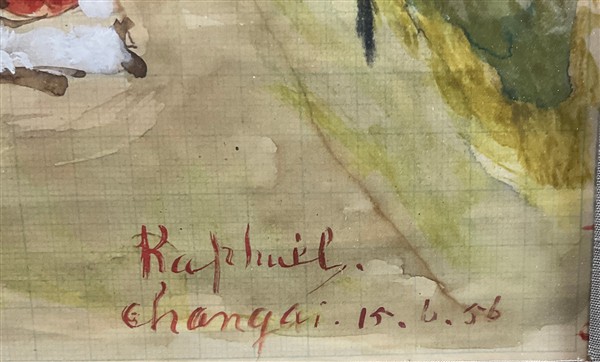 Raphaël.
Changai. 15. 6. 56